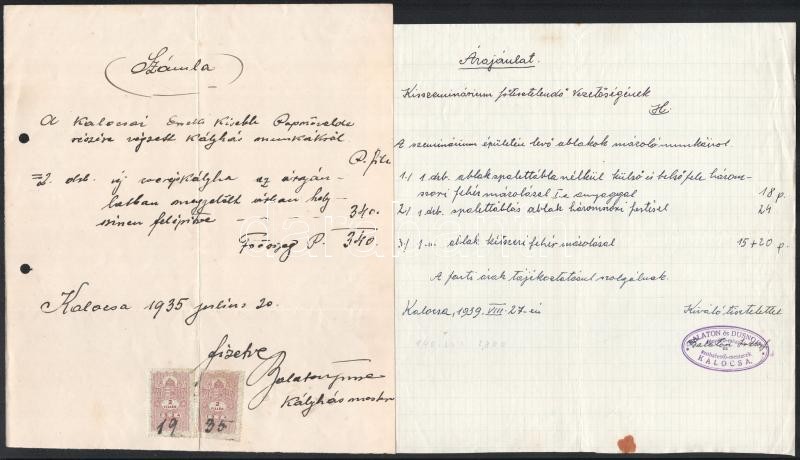 Számla
A Kalocsai Érseki Kisebb Papnövelde
részére végzett Kályhás munkákról
P. fil.
2. drb. új cserépkályha az áraján-
latban megjelölt árban hely-
szinen felépitve 340.
Főösszeg P. 340.
Kalocsa 1935 julius 20.
fizetve
Kályhás mester
2
2
19 35
Árajánlat.
Kisszeminárium főtisztelendő Vezetőségének
H.
A szeminárium épületén levő ablakok mázoló munkáiról
1./ 1 drb. ablak spalettábla nélkül külső és belső fele három-
szori fehér mázolással I-a anyaggal 18 p.
2./ 1 drb. spalettáblás ablak háromszori festéssel 24
3./ 1 ablak kétszeri fehér mázolással 15+20 p.
A fenti árak tájékoztatásul szolgálnak.
Kalocsa, 1939. VIII. 27-én
Kiváló tisztelettel
BALATON és DUSNOKI
KALOCSA.